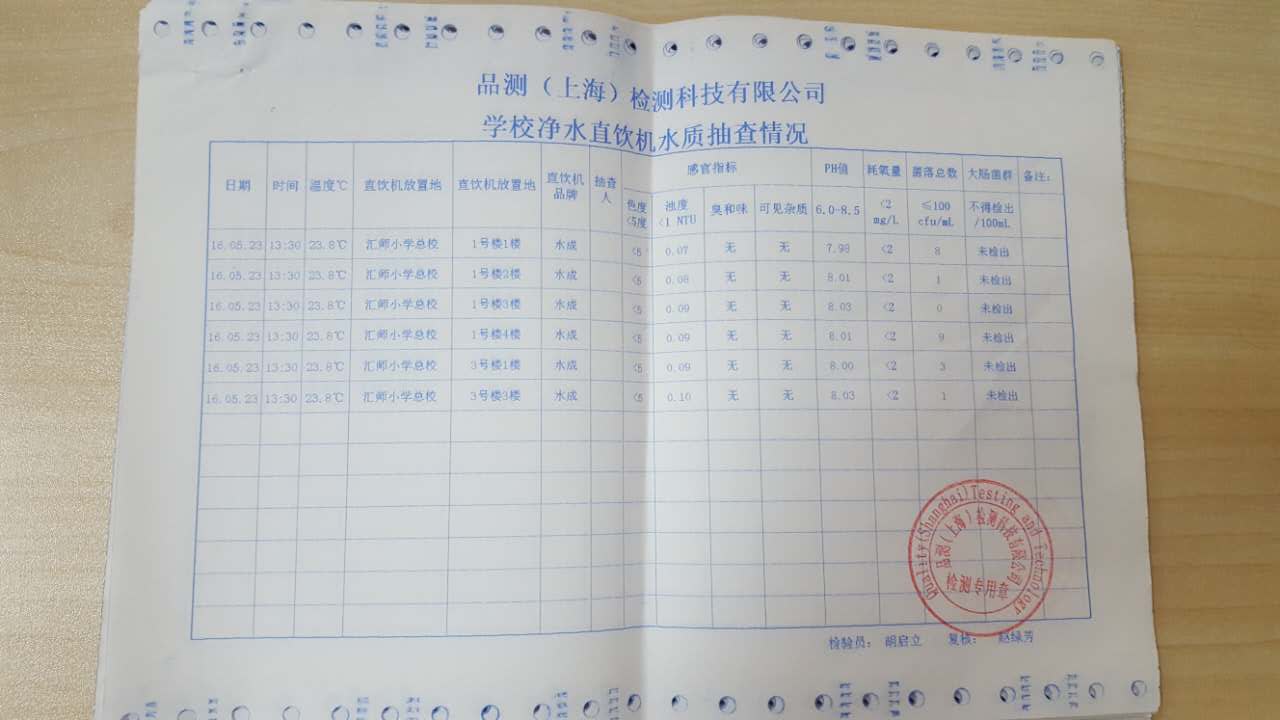 品测（上海）检测科技有限公司
学校净水直饮机水质抽查情况
日期 时间 温度℃ 直饮机放置地 直饮机放置地 直饮机品牌 抽查人 感官指标 PH值 耗氧量 菌落总数 大肠菌群 备注：
色度<5度 浊度<1 NTU 臭和味 可见杂质 6.0-8.5 <2 mg/L ≤100 cfu/mL 不得检出/100mL
16.05.23 13:30 23.8℃ 汇师小学总校 1号楼1楼 水成 <5 0.07 无 无 7.98 <2 8 未检出
16.05.23 13:30 23.8℃ 汇师小学总校 1号楼2楼 水成 <5 0.08 无 无 8.01 <2 1 未检出
16.05.23 13:30 23.8℃ 汇师小学总校 1号楼3楼 水成 <5 0.09 无 无 8.03 <2 0 未检出
16.05.23 13:30 23.8℃ 汇师小学总校 1号楼4楼 水成 <5 0.09 无 无 8.01 <2 9 未检出
16.05.23 13:30 23.8℃ 汇师小学总校 3号楼1楼 水成 <5 0.09 无 无 8.00 <2 3 未检出
16.05.23 13:30 23.8℃ 汇师小学总校 3号楼3楼 水成 <5 0.10 无 无 8.03 <2 1 未检出
Quality(Shanghai)Testing and Technology
品测（上海）检测科技有限公司
检测专用章
检验员： 胡启立 复核： 赵绿芳